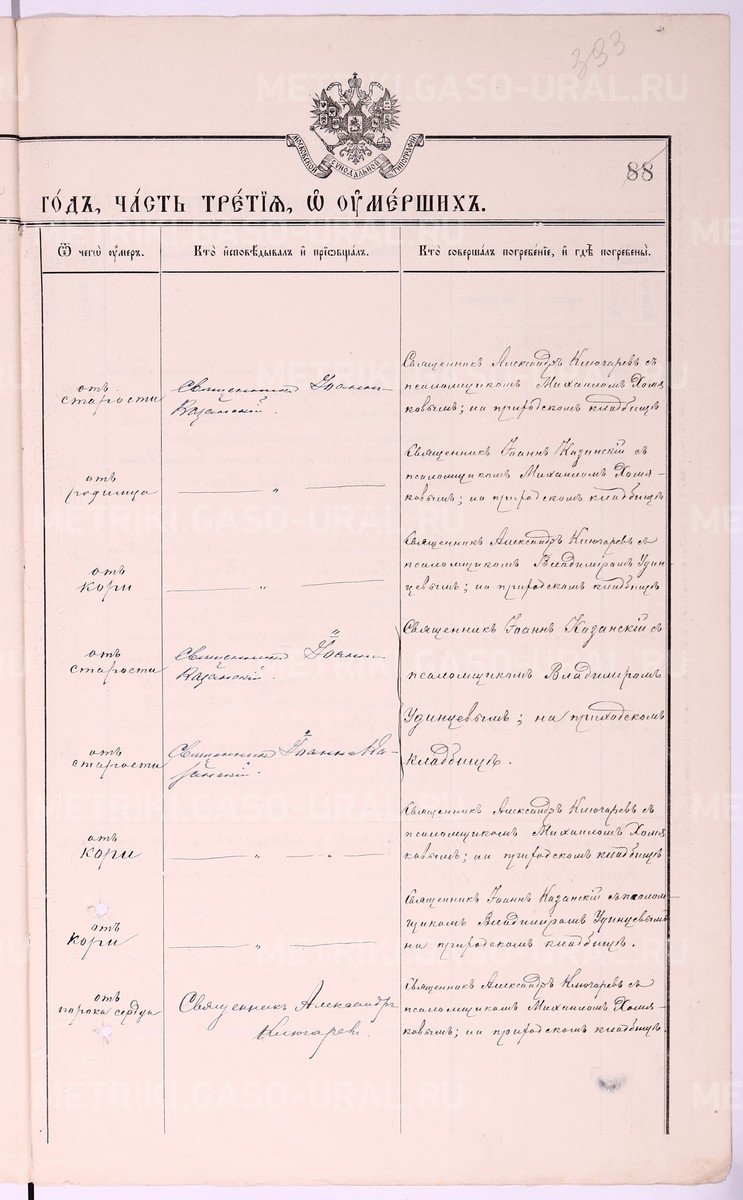 393
МОСКОВСКОЙ СѴНОДАЛЬНОЙ ТИПОГРАФІИ
88
ГОДЪ, ЧАСТЬ ТРЕТІЯ, Ѽ ОУМЕРШИХЪ.
Ѿ чегѡ оумеръ.
Кто исповѣдывалъ и пріобщалъ.
Кто совершалъ погребеніе, и гдѣ погребены.
отъ
старости
Священникъ Іоаннъ
Казанскій.
Священникъ Александръ Ключаревъ съ
псаломщикомъ Михаиломъ Хомя-
ковымъ; на приходскомъ кладбищѣ
отъ
родимца
— „ —
Священникъ Іоаннъ Казанскій съ
псаломщикомъ Михаиломъ Хомя-
ковымъ; на приходскомъ кладбищѣ
отъ
кори
— „ —
Священникъ Александръ Ключаревъ съ
псаломщикомъ Владиміромъ Удин-
цевымъ; на приходскомъ кладбищѣ
отъ
старости
Священникъ Іоаннъ
Казанскій.
Священникъ Іоаннъ Казанскій съ
псаломщикомъ Владиміромъ
Удинцевымъ; на приходскомъ
кладбищѣ.
отъ
старости
Священникъ Іоаннъ Ка-
занскій.
отъ
кори
— „ — „ —
Священникъ Александръ Ключаревъ съ
псаломщикомъ Михаиломъ Хомя-
ковымъ; на приходскомъ кладбищѣ
отъ
кори
— „ —
Священникъ Іоаннъ Казанскій съ псалом-
щикомъ Владиміромъ Удинцевымъ
на приходскомъ кладбищѣ.
отъ
порока сердца
Священникъ Александръ
Ключаревъ.
Священникъ Александръ Ключаревъ съ
псаломщикомъ Михаиломъ Хомя-
ковымъ; на приходскомъ кладбищѣ.
METRIKI.GASO-URAL.RU